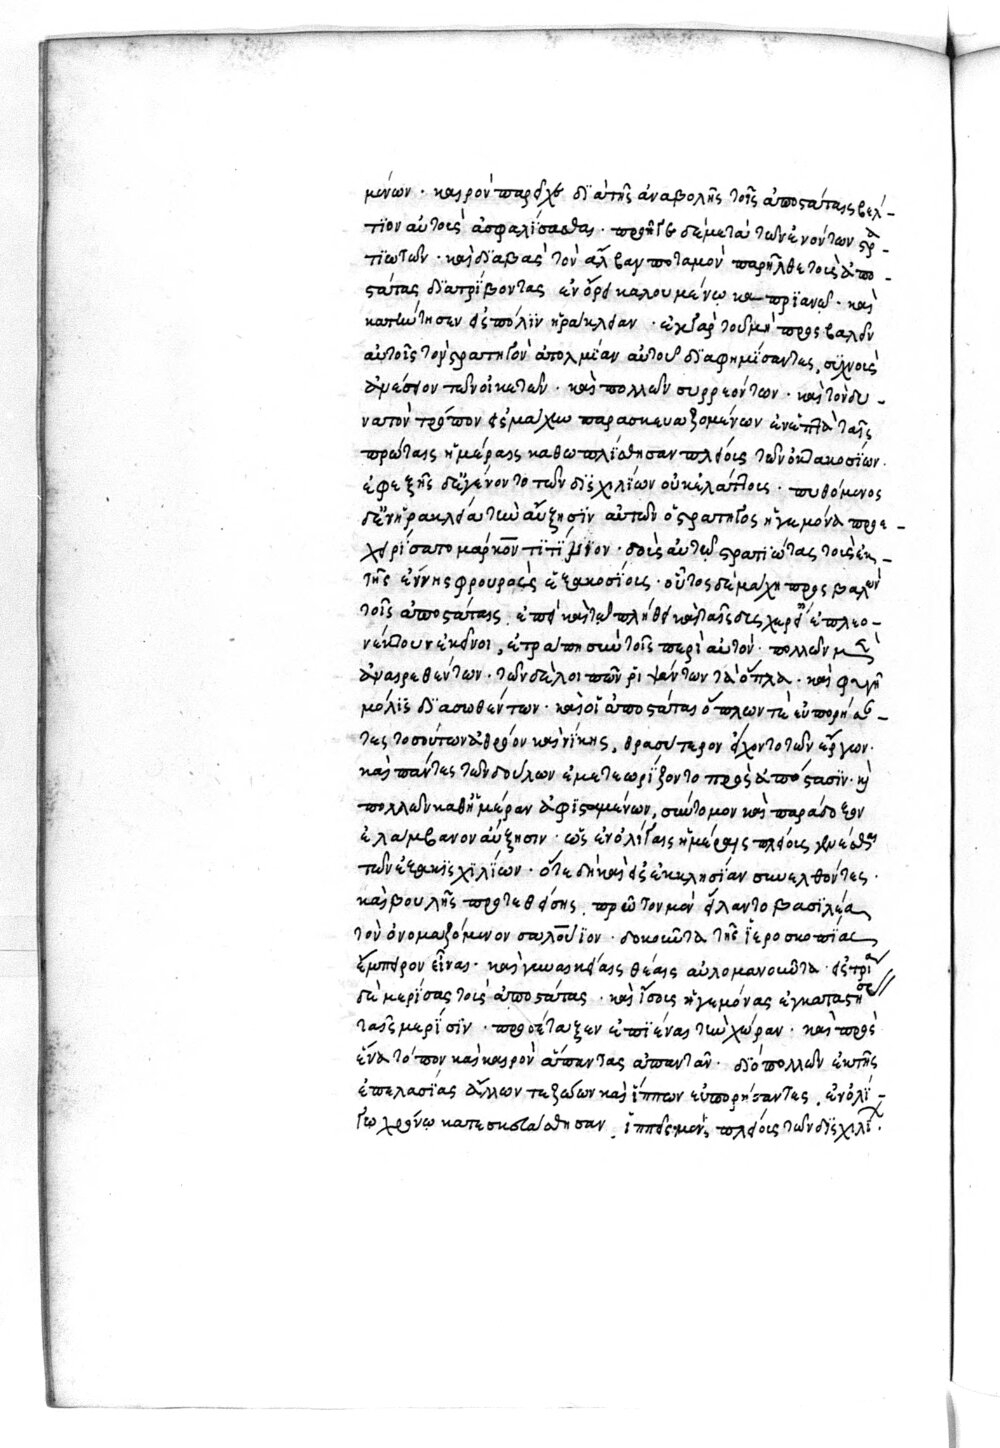 μένων · καιρὸν παρεῖχε διὰ τῆς ἀναβολῆς τοῖς ἀποστάταις βέλ-
τιον αὐτοὺς ἀσφαλίσασθαι · προῆγε δὲ μετὰ τῶν ἐνόντων στρα-
τιωτῶν · καὶ διαβὰς τὸν ἄλβαν ποταμὸν παρῆλθε τοὺς ἀπο-
στάτας διατρίβοντας ἐν ὄρει καλουμένῳ καπριανῷ · καὶ
κατήντησεν εἰς πόλιν ἡράκλειαν · ἐκ γὰρ τοῦ μὴ προσβαλεῖν
αὐτοῖς τὸν στρατηγὸν ἀτολμίαν αὐτοῦ διαφημίσαντες, συχνοὺς
ἀνέσειον τῶν οἰκετῶν · καὶ πολλῶν συρρεόντων · καὶ τὸν δυ-
νατὸν τρόπον εἰς μάχην παρασκευαζομένων ἐν ἑπτὰ ταῖς
πρώταις ἡμέραις καθωπλίσθησαν πλείους τῶν ὀκτακοσίων.
ἐφεξῆς δὲ ἐγένοντο τῶν δισχιλίων οὐκ ἐλάττους · πυθόμενος
δὲ ἐν ἡρακλείᾳ τὴν αὔξησιν αὐτῶν ὁ στρατηγὸς ἡγεμόνα προε-
χειρίσατο μάρκον τιτίνιον · δοὺς αὐτῷ στρατιώτας τοὺς ἐκ
τῆς ἔννης φρουροὺς ἑξακοσίους · οὗτος δὲ μάχῃ προσβαλὼν
τοῖς ἀποστάταις, ἐπεὶ καὶ τῷ πλήθει καὶ ταῖς δυσχερείαις ἐπλεο-
νέκτουν ἐκεῖνοι, ἐτράπη σὺν τοῖς περὶ αὐτόν · πολλῶν μὲν
ἀναιρεθέντων · τῶν δὲ λοιπῶν ῥιψάντων τὰ ὅπλα · καὶ φυγῇ
μόλις διασωθέντων · καὶ οἱ ἀποστάται ὅπλων τε εὐπορήσαν-
τες τοσούτων ἀθρόον καὶ νίκης, θρασύτερον εἴχοντο τῶν ἔργων.
καὶ πάντες τῶν δούλων ἐμετεωρίζοντο πρὸς ἀπόστασιν · καὶ
πολλῶν καθ' ἡμέραν ἀφισταμένων, σύντομον καὶ παράδοξον
ἐλάμβανον αὔξησιν · ὡς ἐν ὀλίγαις ἡμέραις πλείους γενέσθαι
τῶν ἑξακισχιλίων · ὅτε δὴ καὶ εἰς ἐκκλησίαν συνελθόντες ·
καὶ βουλῆς προτεθείσης, πρῶτον μὲν εἵλαντο βασιλέα
τὸν ὀνομαζόμενον σαλούϊον · δοκοῦντα τῆς ἱεροσκοπίας
ἔμπειρον εἶναι · καὶ γυναικείαις θέαις αὐλομανοῦντα · εἰς τρία
δὲ μερίσας τοὺς ἀποστάτας · καὶ ἴσους ἡγεμόνας ἐγκαταστήσας
ταῖς μερίσιν · προσέταξεν ἐπιέναι τὴν χώραν · καὶ πρὸς
ἕνα τόπον καὶ καιρὸν ἅπαντας ἀπαντᾶν · διὸ πολλῶν ἐκ τῆς
ἐπελασίας ἄλλων τε ζῴων καὶ ἵππων εὐπορήσαντες, ἐν ὀλί-
γῳ χρόνῳ κατεσκευάσθησαν, ἱππεῖς μὲν πλείους τῶν δισχιλί.